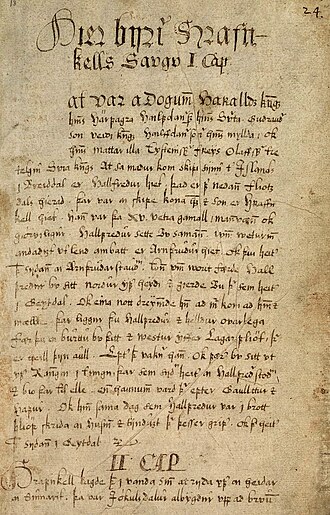 24.
Hier byriar Hrafn-
kells Saugu I Cap
at var a dogum Haralldz kngs
hins harfagra Halfdanar s hins Svta Gudraud
son veidi kngs Halfdanar sonar hins millda ok
hins matar illa Eysteins s Freys Olafs s tre
telgiu Svia kngs At sa madur kom skipi sinu t Islandz
i Breiddal er Hallfredur hiet þad er f nedan Fliotz
dalz hierad þar var a skipe kona hans ok son er Hrafn
kell hiet han var þa XV vetra gamall mannvæn ok
giorviligur Hallfredur sette Bu saman Um veturin
andadizt utlend ambatt er Arnþrudur hiet Ok þvi heitir
sydan a Arnþrudarstaud En um vorit færde Hall
fredur bu sitt nordur yfer heidi ok gierde Bu þar sem heitir
i Geitdal Ok eina nott dreymde hann ad madur kom ad hm ok
mællte þar liggur þu Hallfredur ok helldur ovarlega
Far þu a burtu bu þitt ok vestur yfer Lagarfliot þar
er heill þin aull Epter þad vaknar han Ok færer bu sitt ut yfer
Rangá i Tungu þar sem sydan heiter a Hallfredstod
ok bio þar til elle En honum vard þar epter Gaulltur ok
hafur Ok hin sama dag sem Hallfredur var i brott
hliop skrida a husin ok tyndust þar þesser griper Ok þvi heit
sydan i Geytdal
II CAP
Hrafnkell lagde þad i vanda sin at ryda yfer a heidar
a sumarit þa var Jokulsdalur albygdur upp ad bruum